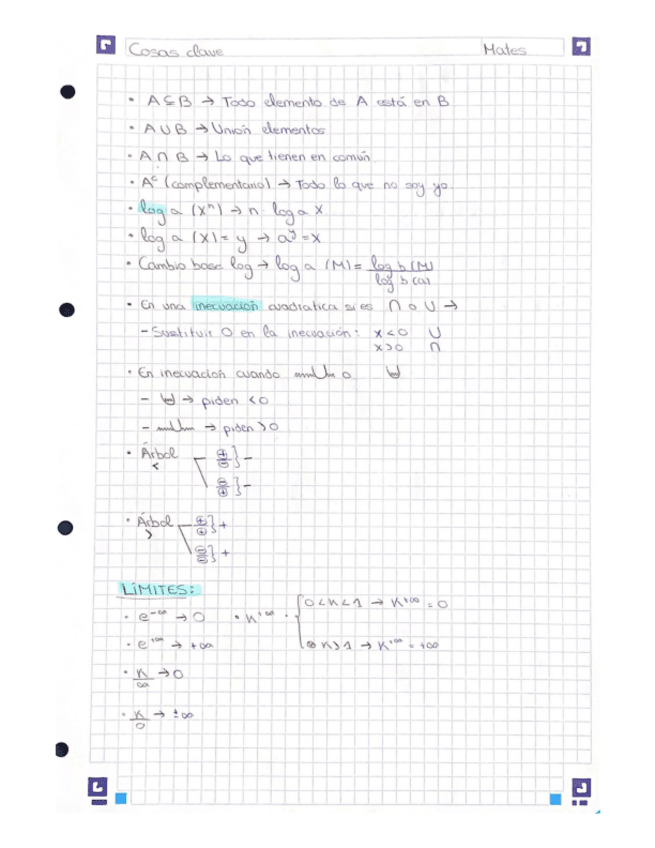 Cosas clave Mates
• A ⊆ B → Todo elemento de A está en B
• A ∪ B → Unión elementos
• A ∩ B → Lo que tienen en común
• Aᶜ (complementario) → Todo lo que no soy yo.
• log a (xⁿ) → n · log a x
• log a (x) = y → aʸ = x
• Cambio base log → log a (M) = log b (M) / log b (a)
• En una inecuación cuadratica si es ∩ o ∪ →
– Sustituir 0 en la inecuación: x < 0 ∪
x > 0 ∩
• En inecuación cuando o
– → piden < 0
– → piden > 0
• Árbol <
⊕/⊖ } –
⊖/⊕ } –
• Árbol >
⊕/⊕ } +
⊖/⊖ } +
LÍMITES:
• e^-∞ → 0 • K^+∞ • { 0 < K < 1 → K^+∞ = 0
• e^+∞ → +∞ K > 1 → K^+∞ = +∞
• K/∞ → 0
• K/0 → ±∞